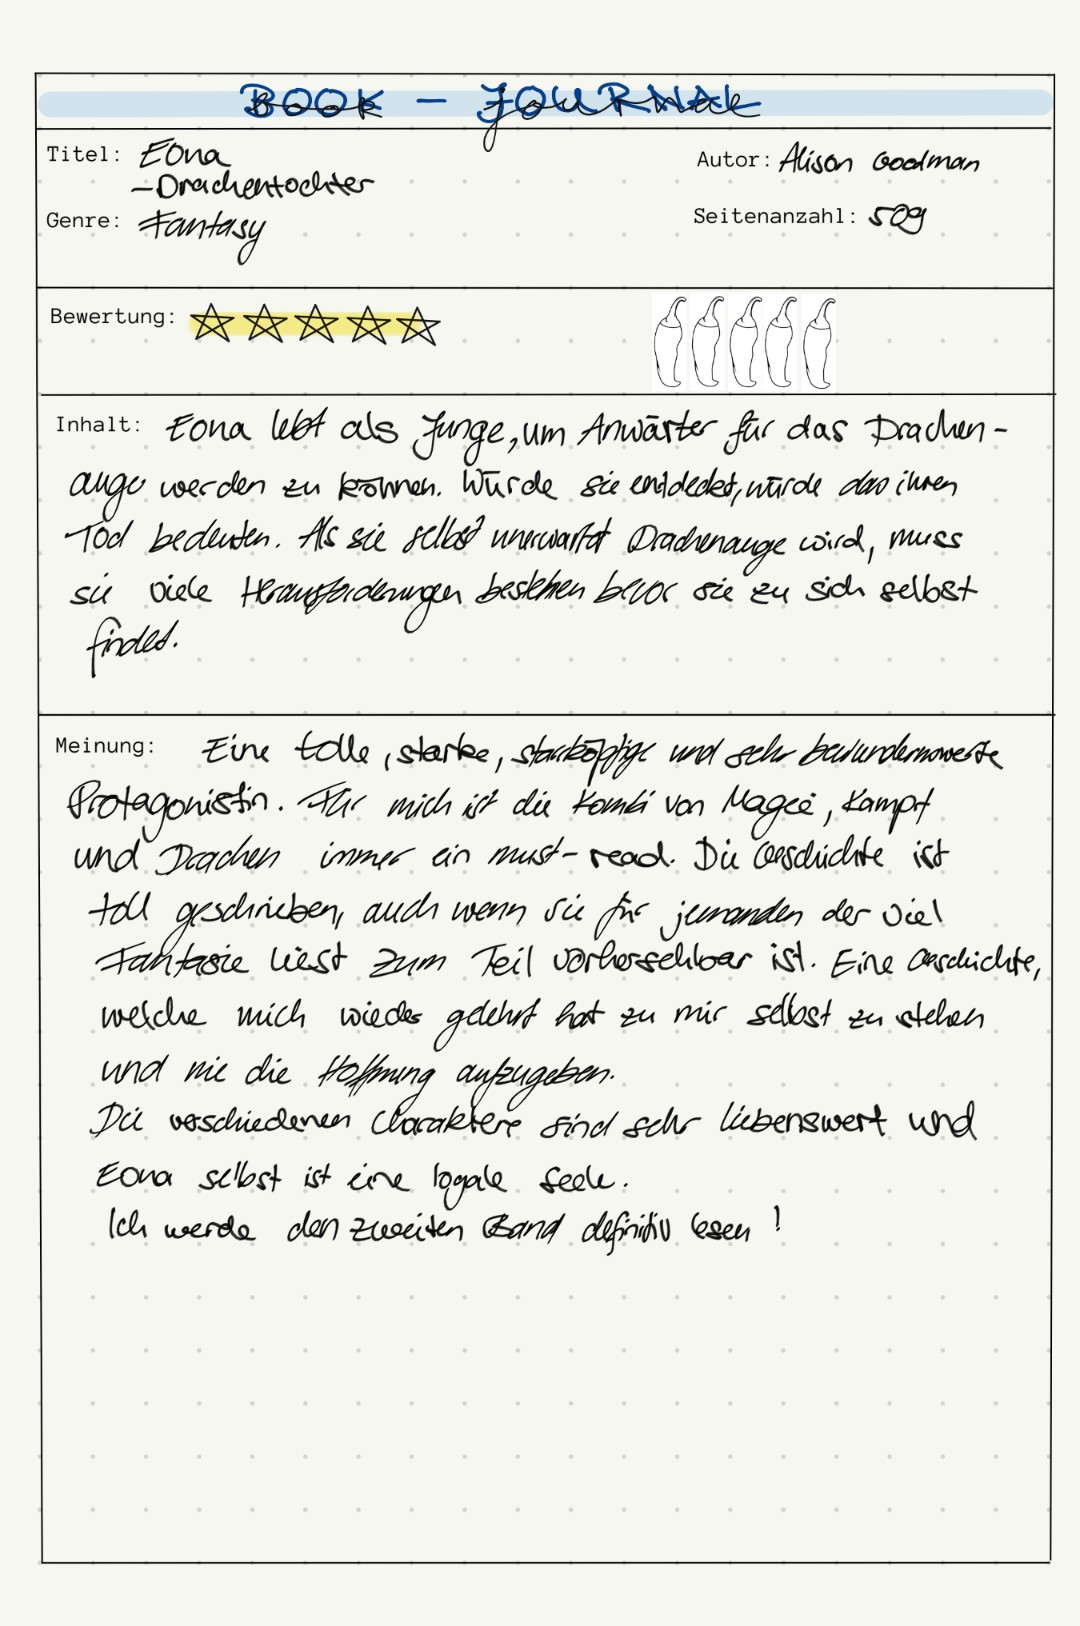 BOOK - JOURNAL
Titel: Eona
- Drachentochter
Autor: Alison Goodman
Genre: Fantasy
Seitenanzahl: 509
Bewertung:
Inhalt: Eona lebt als Junge, um Anwärter für das Drachen-
auge werden zu können. Würde sie entdecket, würde das ihren
Tod bedeuten. Als sie selbst unerwartet Drachenauge wird, muss
sie viele Herausforderungen bestehen bevor sie zu sich selbst
findet.
Meinung: Eine tolle, starke, starköpfige und sehr bewundernswerte
Protagonistin. Für mich ist die Kombi von Magie, Kampf
und Drachen immer ein must-read. Die Geschichte ist
toll geschrieben, auch wenn sie für jemanden der viel
Fantasie liest zum Teil vorhersehbar ist. Eine Geschichte,
welche mich wieder gelehrt hat zu mir selbst zu stehen
und nie die Hoffnung aufzugeben.
Die verschiedenen Charaktere sind sehr liebenswert und
Eona selbst ist eine loyale Seele.
Ich werde den zweiten Band definitiv lesen!